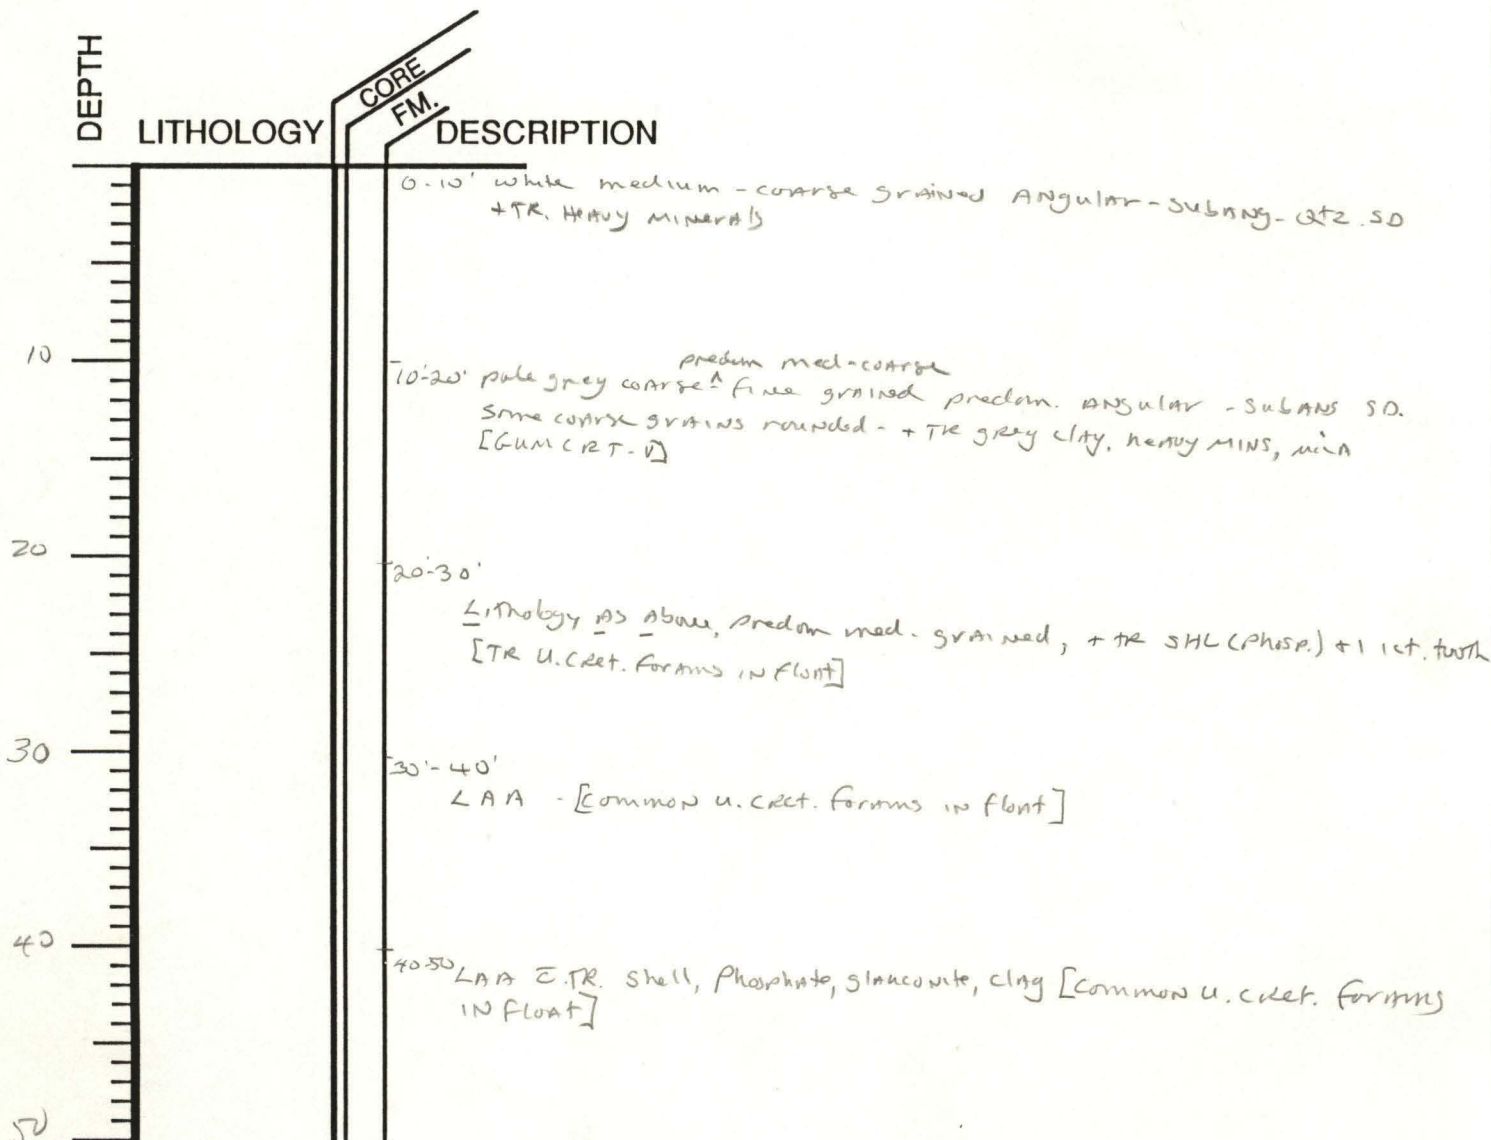 DEPTH
LITHOLOGY
CORE
FM.
DESCRIPTION
0-10' white medium - coarse grained Angular-subang- Qtz. SD
+TR. Heavy minerals
predom med-coarse
10'-20' pale grey coarse ^ fine grained predom. Angular - SubAng SD.
Some coarse grains rounded - + TR grey clay, heavy mins, mica
10
20
20'-30'
Lithology As Above, predom med. grained, + TR SHL (phosp.) + 1 ict. tooth
[TR U. Cret. Forams in float]
30
30'-40'
LAA - [common U. Cret. forams in float]
40
40-50 LAA c̄ TR. shell, Phosphate, glauconite, clay [common U. Cret. forams
in float]
50